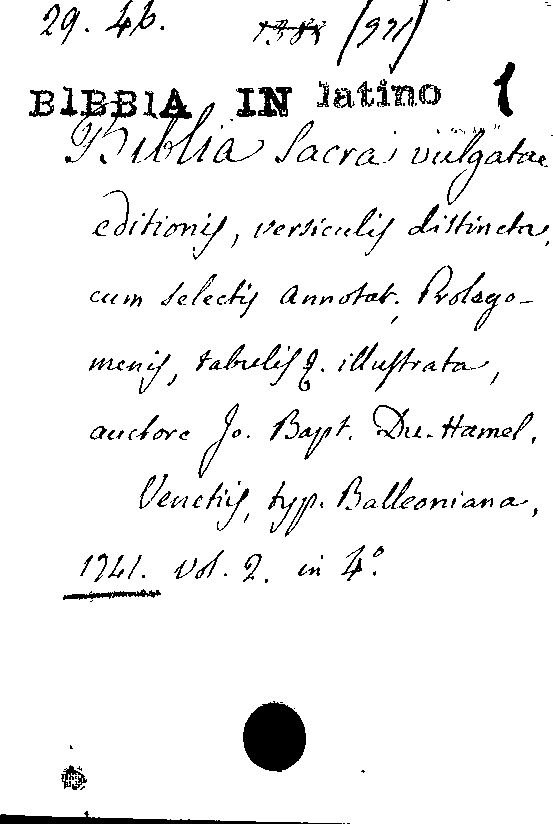 29. 46. 1388 (971)
BIBBIA IN latino 1
Biblia Sacra vulgatae
editionis, versiculis distincta,
cum selectis annotat. Prolego-
menis, tabulisq. illustrata,
auctore Jo. Bapt. Du-Hamel.
Venetiis, typ. Balleoniana,
1741. vol. 2. in 4°.